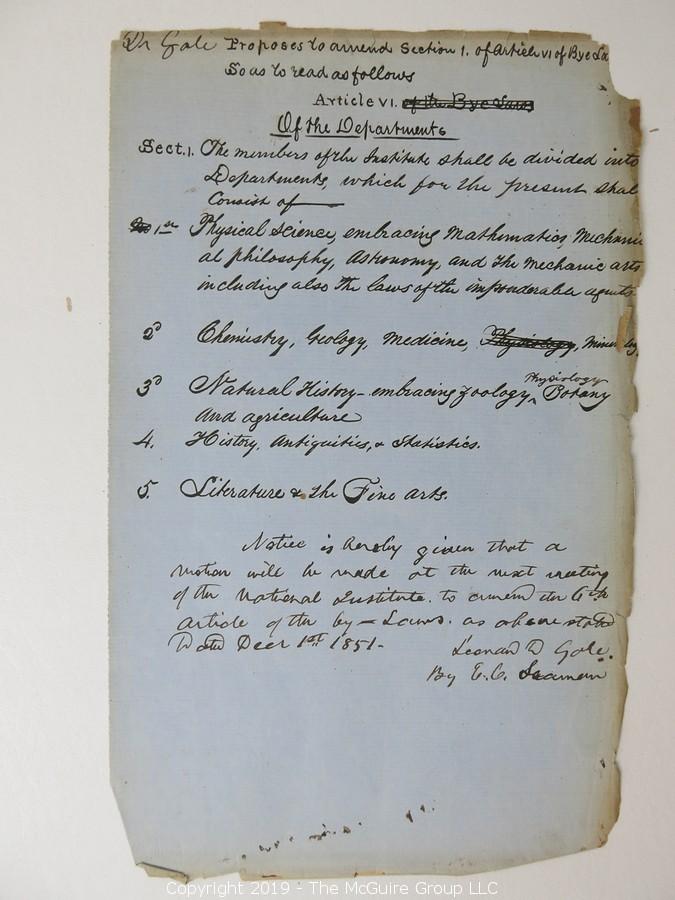 Dr Gale Proposes to amend Section 1. of Article VI of Bye La
So as to read as follows
Article VI. of the Bye Laws
Of the Departments
Sect. 1. The members of the Institute shall be divided into
Departments, which for the present shal
Consist of
1st Physical Science, embracing Mathematics, Mechanic
al philosophy, Astronomy, and the mechanic arts
including also the laws of the imponderable agents
2d Chemistry, Geology, Medicine, Physiology, Mineralogy
Physiology
3d Natural History - embracing Zoology, ^ Botany
And agriculture
4. History, Antiquities, & Statistics.
5. Literature & the Fine Arts.
Notice is hereby given that a
motion will be made at the next meeting
of the National Institute. to amend the 6th
article of the by-Laws. as above stated
Dated Decr 1st 1851-
Leonard D Gale.
By E. C. Seaman
Copyright 2019 - The McGuire Group LLC